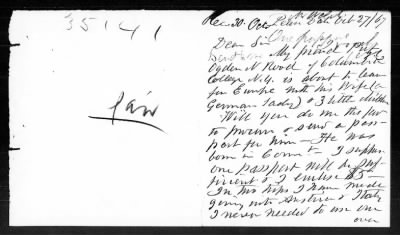 35141
Paid
Rec 30 Oct
Oct 27/67
Dear Sir One passport
My friend Prof
Ogden N Rood of Columbia
College N.Y. is about to leave
for Europe with his Wife (a
German lady) & 3 little children
Will you do me this favor
to procure & send a pass-
port for him – He was
born in Connt – I suppose
one passport will be suf-
ficient & I enclose $5–
In his trips I have made
going into Austria & Italy
I never needed to use one
over